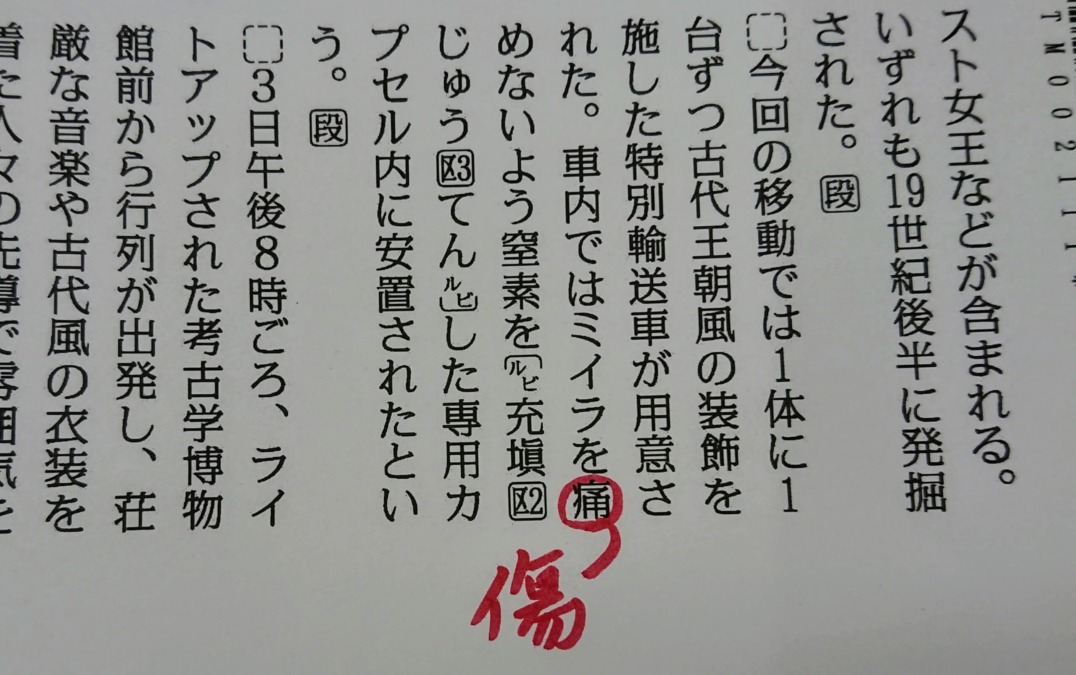 TM002111*
スト女王などが含まれる。
いずれも19世紀後半に発掘
された。段
今回の移動では1体に1
台ずつ古代王朝風の装飾を
施した特別輸送車が用意さ
れた。車内ではミイラを痛
めないよう窒素を〔ルビ充塡区2
じゅう区3てんルビ〕した専用カ
プセル内に安置されたとい
う。段
3日午後8時ごろ、ライ
トアップされた考古学博物
館前から行列が出発し、荘
厳な音楽や古代風の衣装を
着た人々の先導で雰囲気を
傷